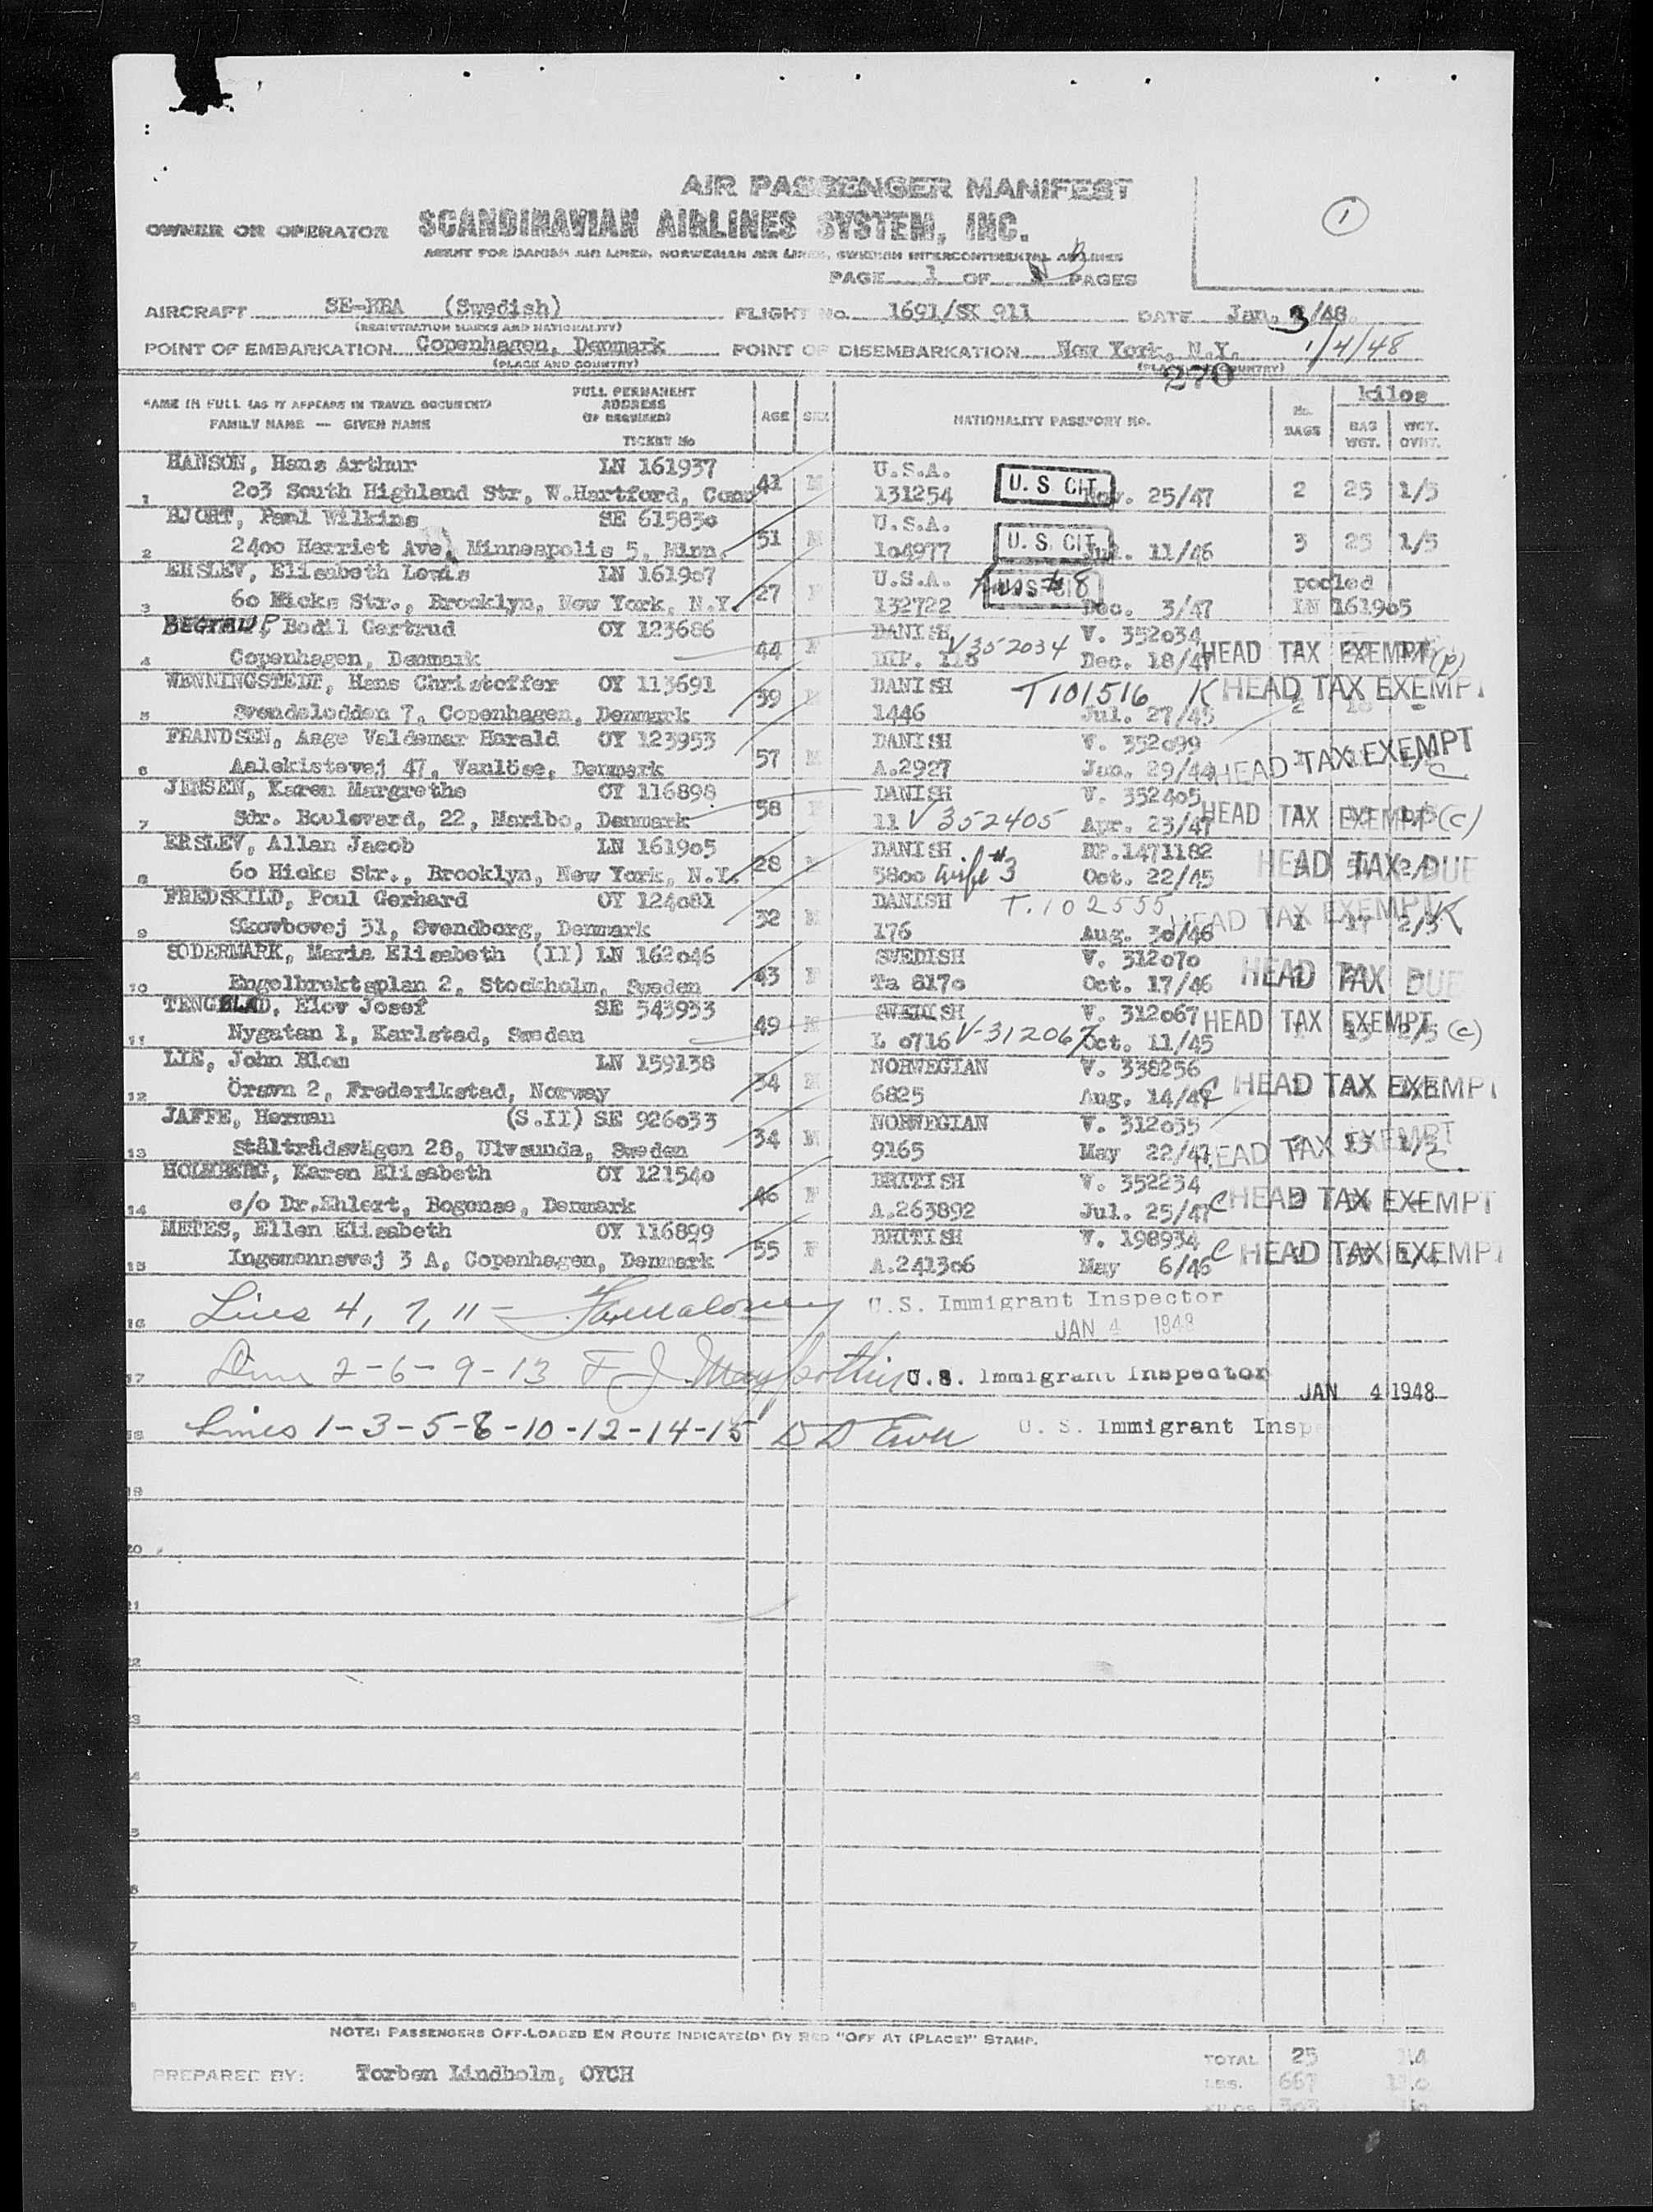 ①
AIR PASSENGER MANIFEST
OWNER OR OPERATOR SCANDINAVIAN AIRLINES SYSTEM, INC.
AGENT FOR DANISH AIR LINES, NORWEGIAN AIR LINES, SWEDISH INTERCONTINENTAL AIRLINES
PAGE 1 OF PAGES
AIRCRAFT (Swedish) FLIGHT No. 1691/SK 911 DATE Jan. 3/48
(REGISTRATION MARKS AND NATIONALITY)
POINT OF EMBARKATION Copenhagen, Denmark POINT OF DISEMBARKATION New York, N.Y. 1/4/48
(PLACE AND COUNTRY) (PLACE AND COUNTRY)
270
NAME IN FULL (AS IT APPEARS IN TRAVEL DOCUMENT) FULL PERMANENT ADDRESS (IF REQUIRED) AGE SEX NATIONALITY PASSPORT No. No. BAGS kilos BAG WGT. WGT. OVHT.
FAMILY NAME — GIVEN NAME TICKET No
HANSON, Hans Arthur LN 161937 41 M U.S.A. U. S CIT
1 203 South Highland Str, W.Hartford, Conn 131254 Nov. 25/47 2 25 1/5
HJORT, Paul Wilkins SE 615830 51 M U.S.A. U. S. CIT
2 2400 Harriet Ave, Minneapolis 5, Minn. 104977 Jul. 11/46 3 25 1/5
ERSLEV, Elisabeth Lewis LN 161907 27 F U.S.A. pooled
3 60 Hicks Str., Brooklyn, New York, N.Y. 132722 Dec. 3/47 LN 161905
BEGTRUP, Bodil Gertrud OY 123686 44 F DANISH V352034 V. 352034
4 Copenhagen, Denmark DIP. 116 Dec. 18/47 HEAD TAX EXEMPT (P)
WENNINGSTEDT, Hans Christoffer OY 113691 59 M DANISH T101516 K HEAD TAX EXEMPT
5 Svendelodden 7, Copenhagen, Denmark 1446 Jul. 27/45 2 18 -
FRANDSEN, Aage Valdemar Harald OY 123953 57 M DANISH V. 352099
6 Aalekistevej 47, Vanlöse, Denmark A.2927 Jan. 29/44 HEAD TAX EXEMPT C
JENSEN, Karen Margrethe OY 116898 58 F DANISH V. 352405
7 Sdr. Boulevard, 22, Maribo, Denmark 11 V352405 Apr. 23/47 HEAD TAX EXEMPT (c)
ERSLEV, Allan Jacob LN 161905 28 M DANISH RP.1471182
8 60 Hicks Str., Brooklyn, New York, N.Y. 5800 wife #3 Oct. 22/45 HEAD TAX DUE
FREDSKILD, Poul Gerhard OY 124081 32 M DANISH T.102555
9 Skovbovej 31, Svendborg, Denmark 176 Aug. 30/46 HEAD TAX EXEMPT K 1 17 2/5
SODERMARK, Maria Elisabeth (II) LN 162046 43 F SWEDISH V. 312070
10 Engelbrektsplan 2, Stockholm, Sweden Ta 8170 Oct. 17/46 HEAD TAX DUE
TENGBLAD, Elov Josef SE 543933 49 M SWEDISH V. 312067
11 Nygatan 1, Karlstad, Sweden L 0716 V-312067 Oct. 11/45 HEAD TAX EXEMPT (c) 1 15 2/5
LIE, John Blom LN 159138 34 M NORWEGIAN V. 338256
12 Öravn 2, Frederikstad, Norway 6825 Aug. 14/47 C HEAD TAX EXEMPT
JAFFE, Herman (S.II) SE 926033 34 M NORWEGIAN V. 312055
13 Ståltrådsvägen 28, Ulvsunda, Sweden 9165 May 22/47 HEAD TAX EXEMPT C.
HOLMBERG, Karen Elisabeth OY 121540 46 F BRITISH V. 352234
14 c/o Dr.Ehlert, Bogense, Denmark A.263892 Jul. 25/47 C HEAD TAX EXEMPT
METES, Ellen Elisabeth OY 116899 55 F BRITISH V. 198934
15 Ingemannsvej 3 A, Copenhagen, Denmark A.241306 May 6/46 C HEAD TAX EXEMPT
16 Lines 4, 7, 11 – U.S. Immigrant Inspector
JAN 4 1948
17 2-6-9-13 U.S. Immigrant Inspector JAN 4 1948
18 Lines 1-3-5-8-10-12-14-15 U. S. Immigrant Insp
19
20
NOTE: PASSENGERS OFF-LOADED EN ROUTE INDICATE(D) BY RED "OFF AT (PLACE)" STAMP.
PREPARED BY: Torben Lindholm, OYCH TOTAL 25
LBS. 667
KILOS 303